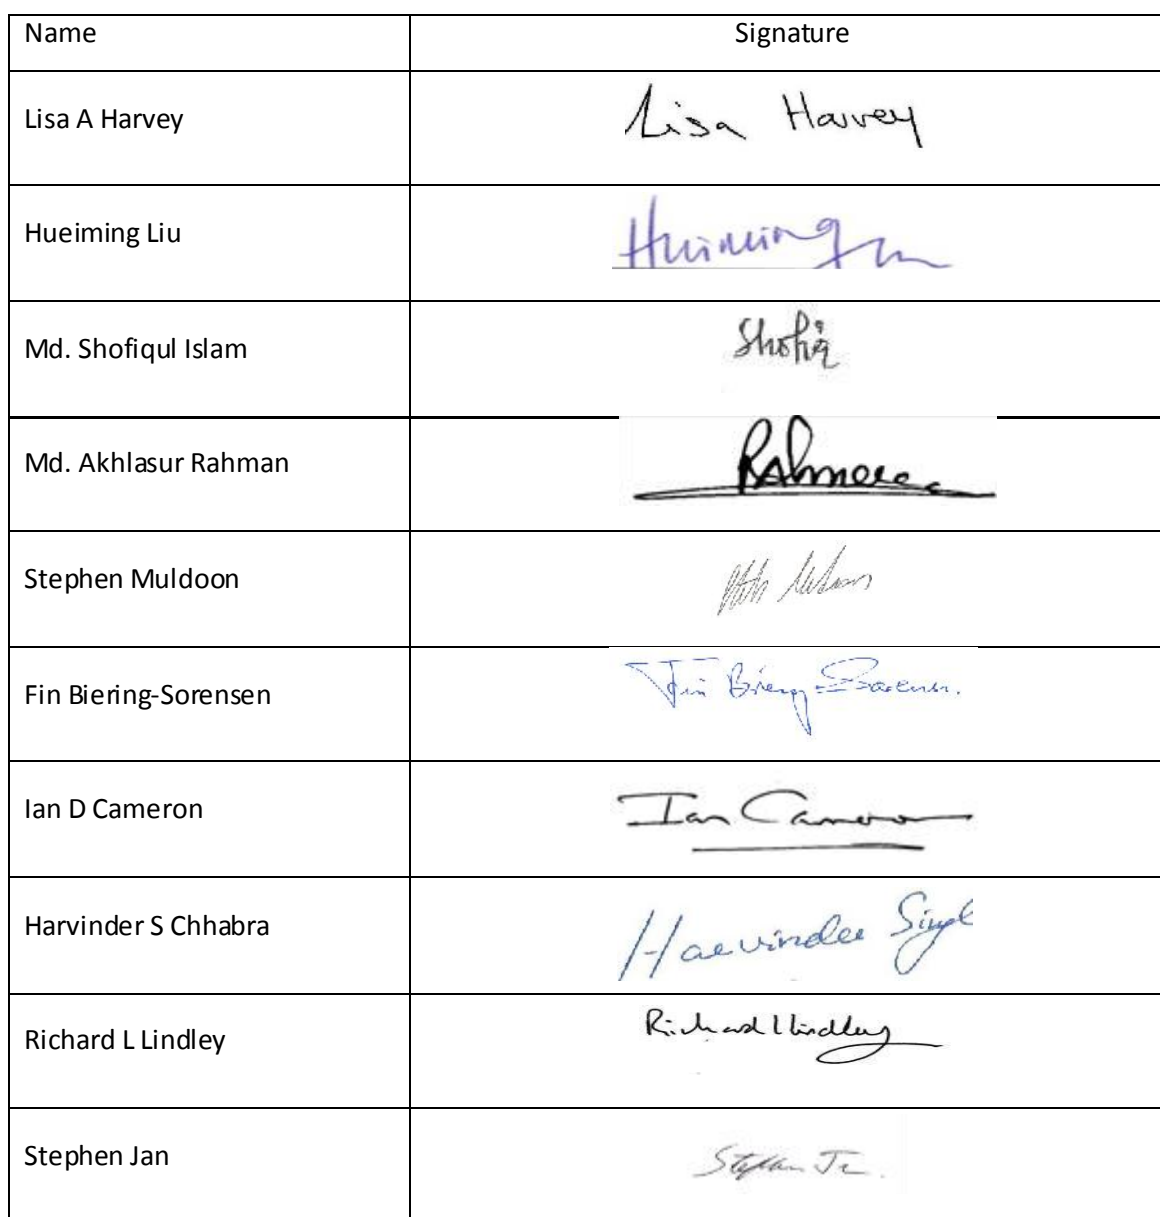 Name Signature
Lisa A Harvey Lisa Harvey
Hueiming Liu
Md. Shofiqul Islam Shofiq
Md. Akhlasur Rahman
Stephen Muldoon
Fin Biering-Sorensen Fin
Ian D Cameron Ian Cameron
Harvinder S Chhabra Harvinder Singh
Richard L Lindley Richard Lindley
Stephen Jan Stephen